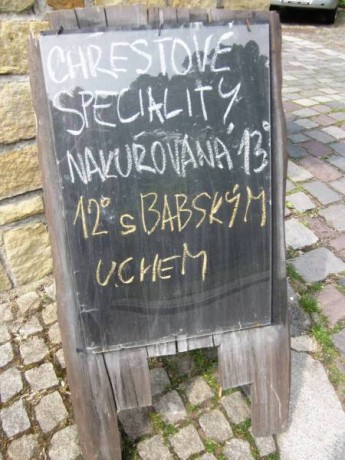 CHŘESTOVÉ
SPECIALITY
NAKUŘOVANÁ 13°
12° S BABSKÝM
UCHEM